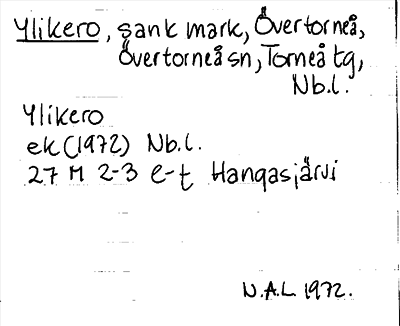 Ylikero, sank mark, Övertorneå,
Övertorneå sn, Torneå tg,
Nb.l.
Ylikero
ek (1972) Nb.l.
27 M 2-3 e-t Hangasjärvi
N.A.L 1972.